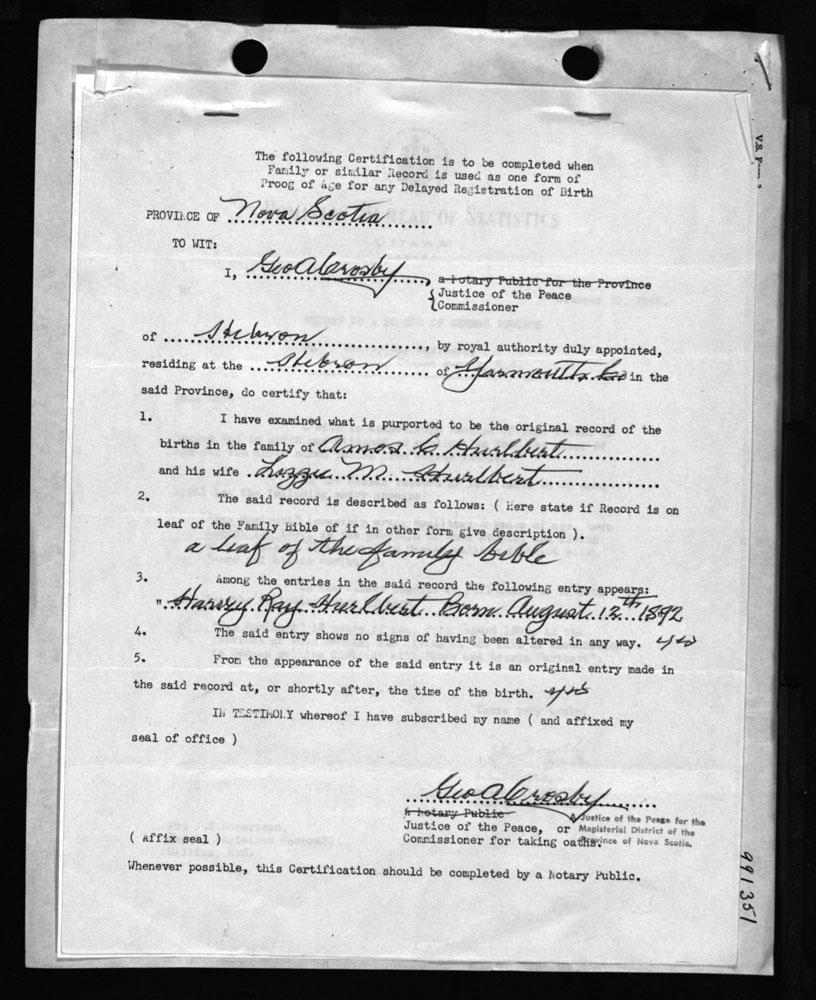 The following Certification is to be completed when
Family or similar Record is used as one form of
Proog of Age for any Delayed Registration of Birth
PROVINCE OF Nova Scotia
TO WIT:
I, Geo A Crosby, a Notary Public for the Province
Justice of the Peace
Commissioner
of Hebron, by royal authority duly appointed,
residing at the Hebron of Yarmouth Co in the
said Province, do certify that:
1. I have examined what is purported to be the original record of the
births in the family of Amos C. Hurlbert
and his wife Lizzie M. Hurlbert
2. The said record is described as follows: ( Here state if Record is on
leaf of the Family Bible of if in other form give description ).
a leaf of the family bible
3. Among the entries in the said record the following entry appears:
" Harvey Ray Hurlbert Born August 12th 1892
4. The said entry shows no signs of having been altered in any way. yes
5. From the appearance of the said entry it is an original entry made in
the said record at, or shortly after, the time of the birth. yes
IN TESTIMONY whereof I have subscribed my name ( and affixed my
seal of office )
Geo A Crosby
A Notary Public
Justice of the Peace, or
Commissioner for taking oaths.
A Justice of the Peace for the
Magisterial District of the
Province of Nova Scotia.
( Affix seal )
Whenever possible, this Certification should be completed by a Notary Public.
991351
V.S.